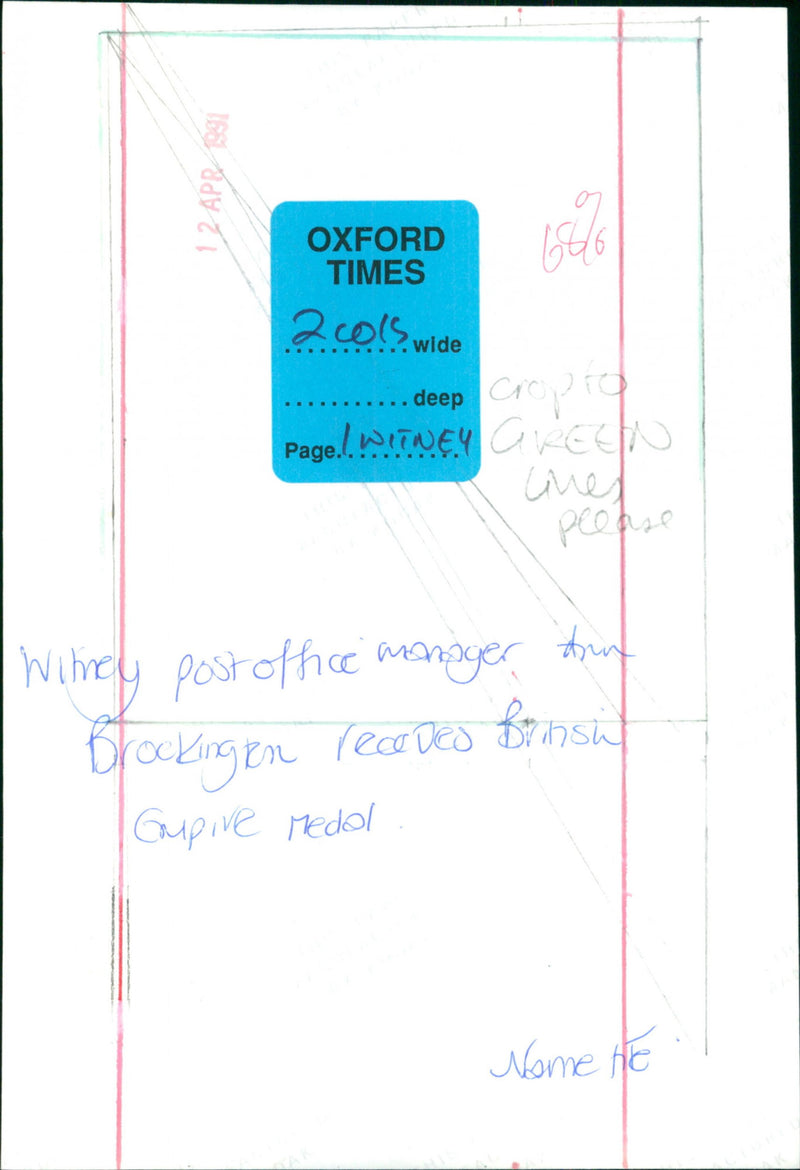 12 APR 1991
68%
OXFORD
TIMES
2 cols wide
........... deep
Page 1 WITNEY
crop to
GREEN
lines
please
Witney post office manager Ann
Brockington receives British
Empire Medal
Name file